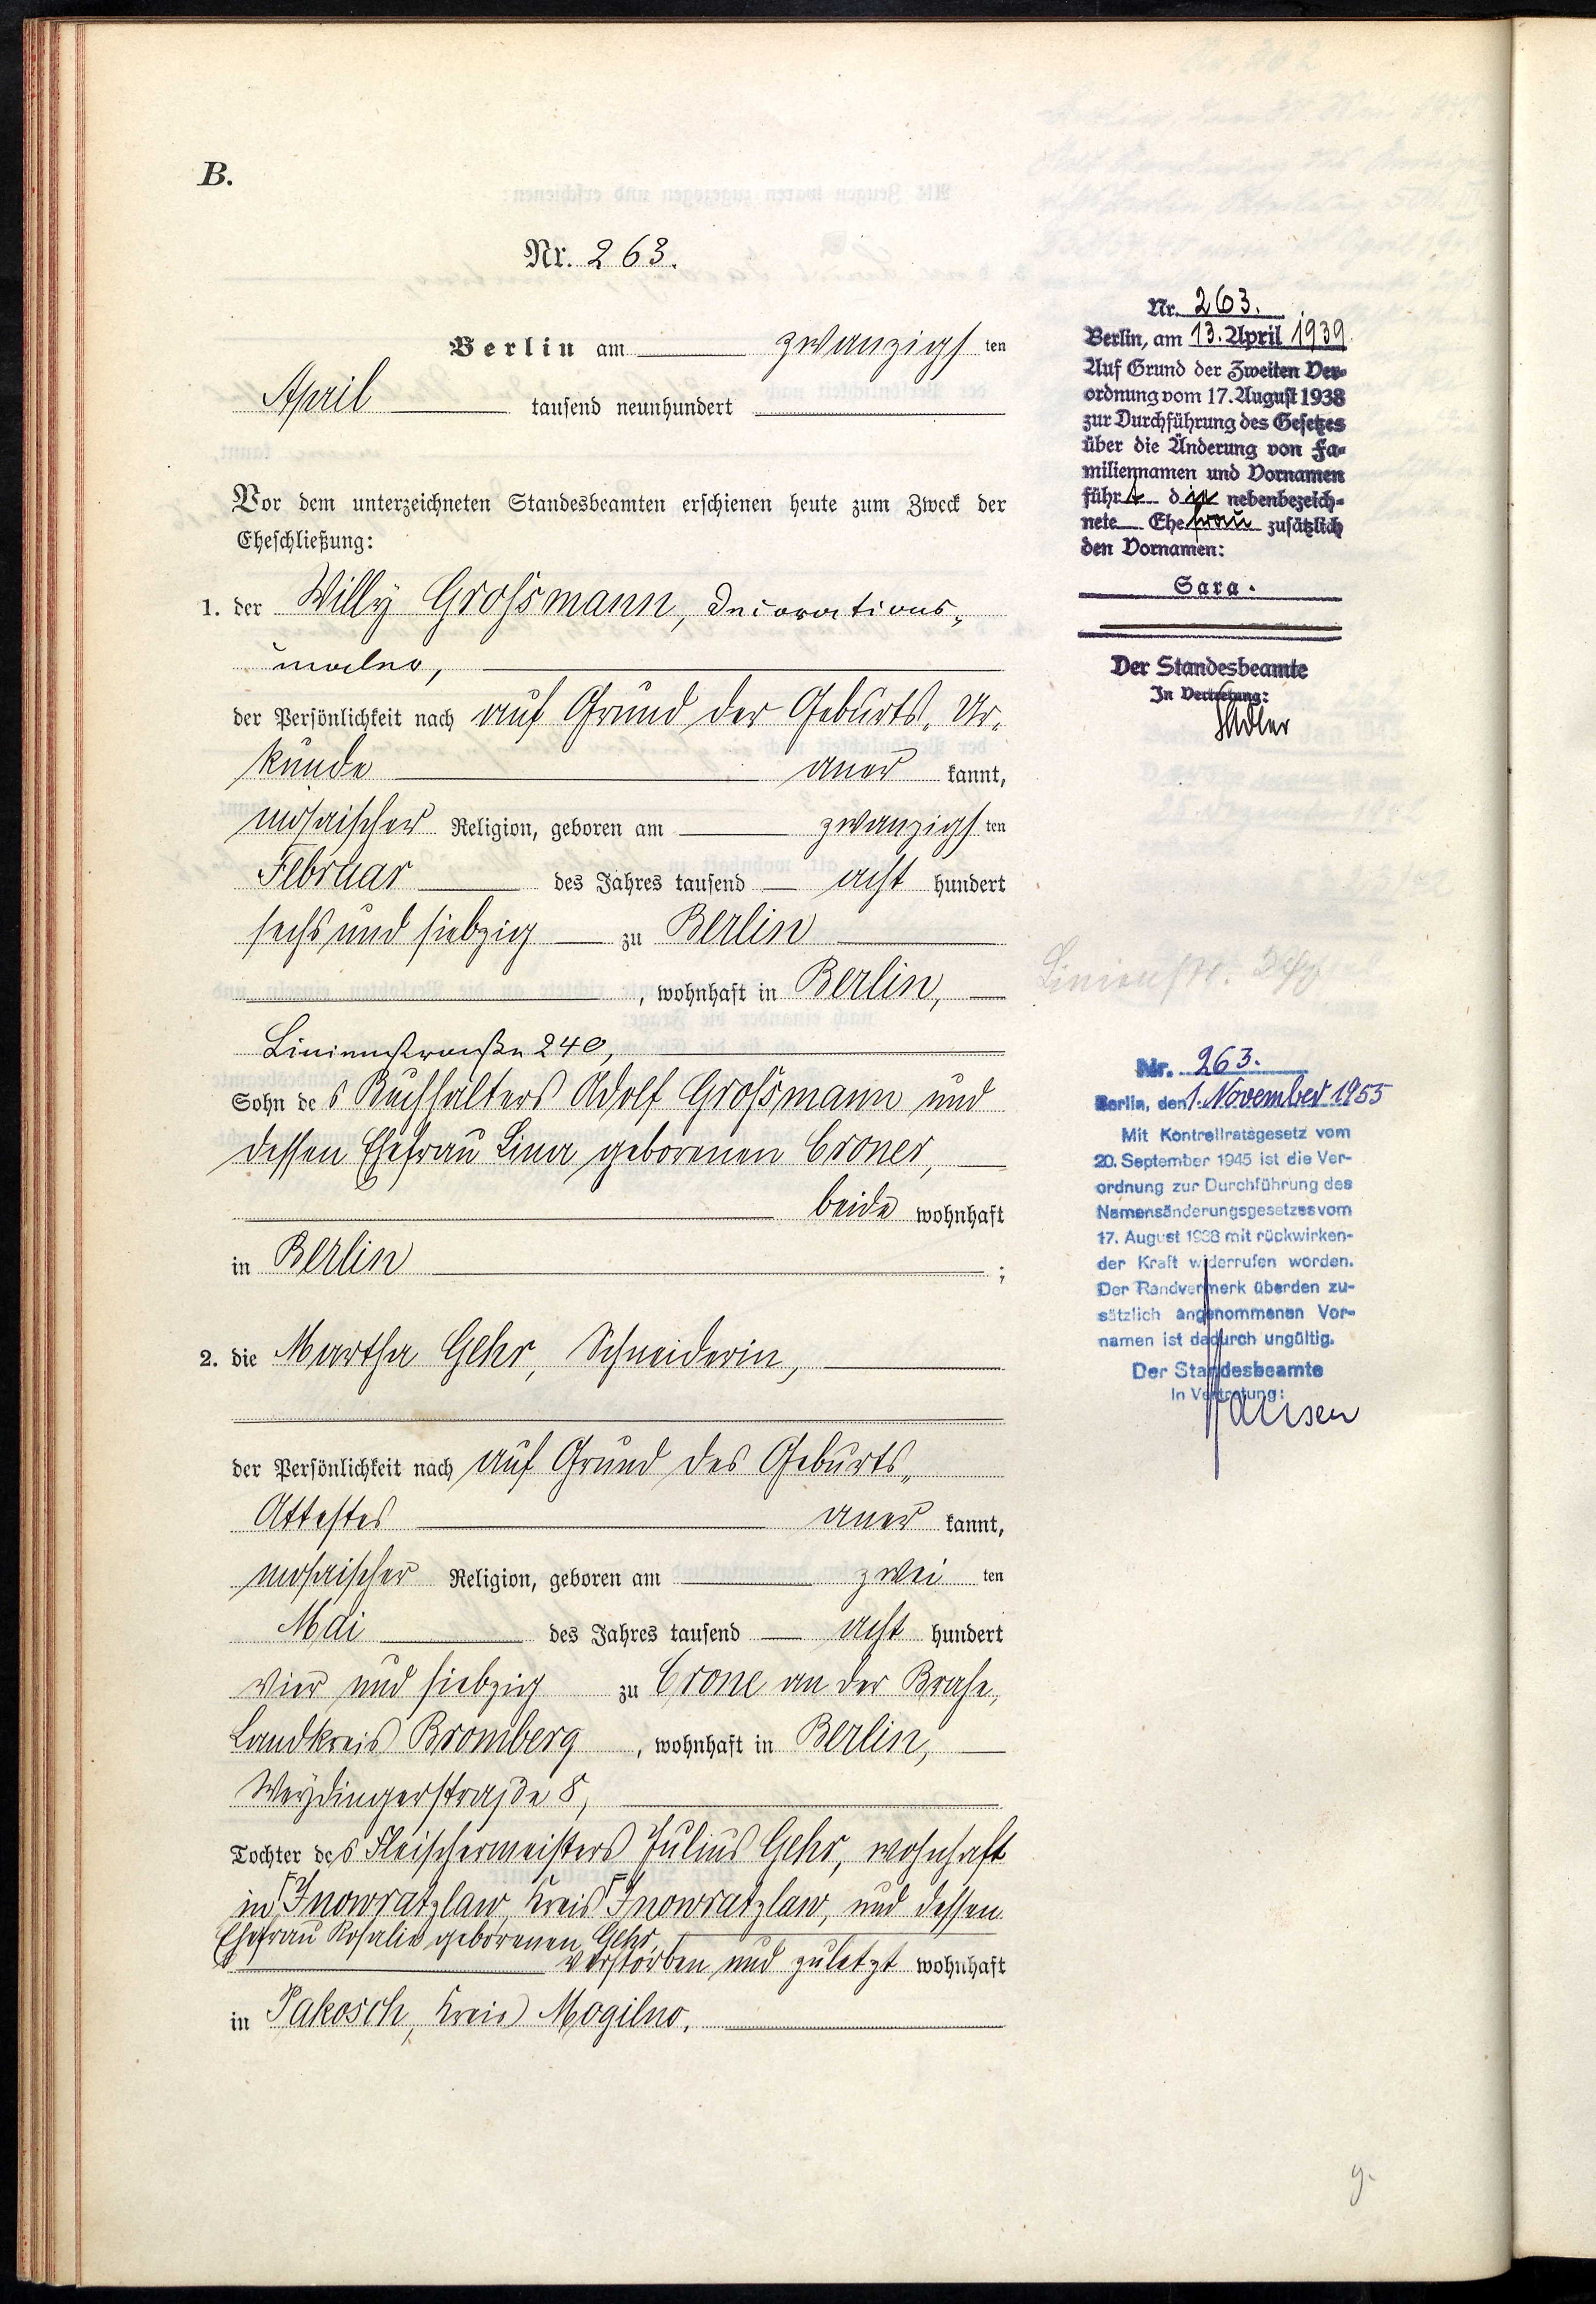 B.
Nr. 263.
Berlin am zwanzigsten
April tausend neunhundert
Vor dem unterzeichneten Standesbeamten erschienen heute zum Zweck der
Eheschließung:
1. der Willy Grossmann, Decorations-
maler,
der Persönlichkeit nach auf Grund der Geburts-Ur-
kunde anerkannt,
mosaischer Religion, geboren am zwanzigsten
Februar des Jahres tausend acht hundert
sechs und siebzig zu Berlin
, wohnhaft in Berlin,
Linienstraße 240,
Sohn des Buchhalters Adolf Grossmann und
dessen Ehefrau Lina geborenen Croner,
beide wohnhaft
in Berlin ;
2. die Martha Gehr, Schneiderin,
der Persönlichkeit nach auf Grund des Geburts-
Attestes anerkannt,
mosaischer Religion, geboren am zweiten
Mai des Jahres tausend acht hundert
vier und siebzig zu Crone an der Brahe,
Landkreis Bromberg, wohnhaft in Berlin,
Weydingerstraße 8,
Tochter des Fleischermeisters Julius Gehr, wohnhaft
in Inowratzlaw, Kreis Inowratzlaw, und dessen
Ehefrau Rosalie geborenen Gehr,
verstorben und zuletzt wohnhaft
in Pakosch, Kreis Mogilno.
Nr. 263.
Berlin, am 13. April 1939
Auf Grund der Zweiten Ver-
ordnung vom 17. August 1938
zur Durchführung des Gesetzes
über die Änderung von Fa-
miliennamen und Vornamen
führt die nebenbezeich-
nete Ehefrau zusätzlich
den Vornamen:
Sara.
Der Standesbeamte
In Vertretung:
Adler
Linienstr.
Nr. 263.
Berlin, den 1. November 1955
Mit Kontrollratsgesetz vom
20. September 1945 ist die Ver-
ordnung zur Durchführung des
Namensänderungsgesetzes vom
17. August 1938 mit rückwirken-
der Kraft widerrufen worden.
Der Randvermerk über den zu-
sätzlich angenommenen Vor-
namen ist dadurch ungültig.
Der Standesbeamte
In Vertretung:
g.